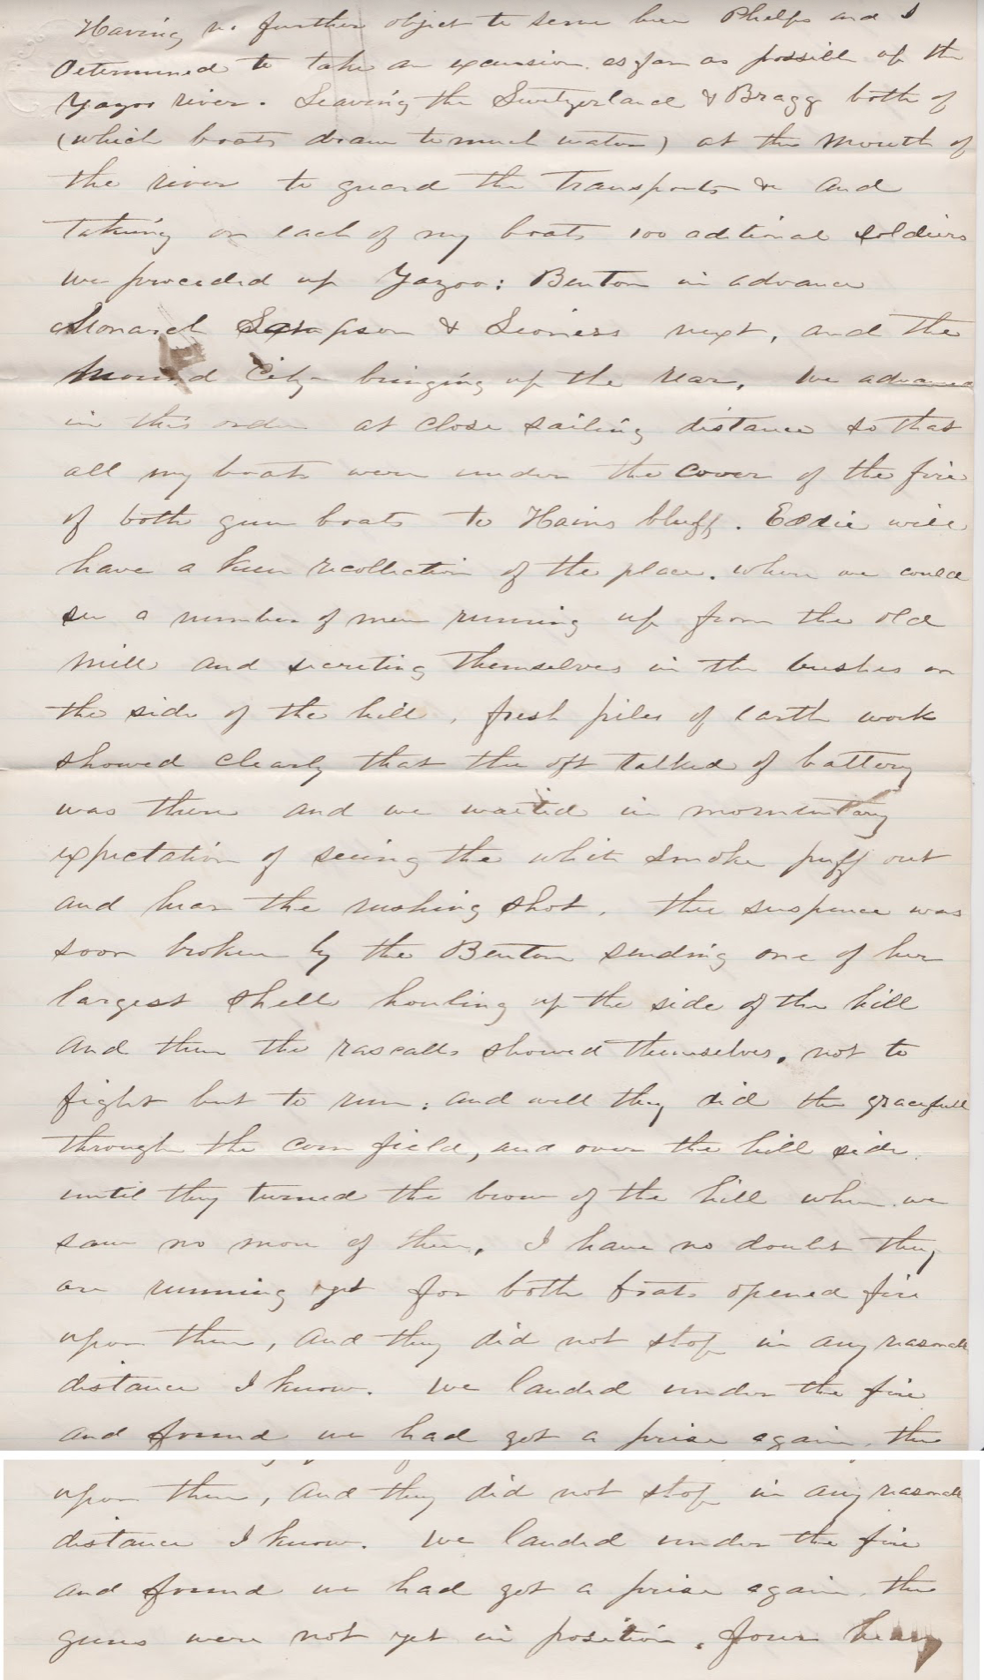 Having no further object to serve here Phelps and I
Determined to take an excursion as far as possible up the
Yazoo river. Leaving the Switzerland & Bragg both of
(which boats draw to much water) at the mouth of
the river to guard the transports &c and
taking on each of my boats 100 adtional soldiers
we proceeded up Yazoo: Benton in advance
Monarch Sampson & Lioness next, and the
Mound City bringing up the rear. We advanced
in this order at close sailing distance so that
all my boats were under the cover of the fire
of both gun boats to Hains bluff. Eddie will
have a keen recollection of the place. where we could
see a number of men running up from the old
mill and secreting themselves in the bushes on
the side of the hill, fresh piles of earth work
showed clearly that the oft talked of battery
was there and we waited in momentary
expectation of seeing the white smoke puff out
and hear the rushing shot. The suspence was
soon broken by the Benton sending one of her
largest shells howling up the side of the hill
And then the rascalls showed themselves, not to
fight but to run: and well they did the gracefull
through the corn field, and over the hill side
until they turned the brow of the hill when we
saw no more of them, I have no doubt they
are running yet for both boats opened fire
upon them, And they did not stop in any reasonable
distance I know. We landed under the fire
and found we had got a prise again. the
upon them, And they did not stop in any reasonable
distance I know. We landed under the fire
and found we had got a prise again the
guns were not yet in position, four heavy